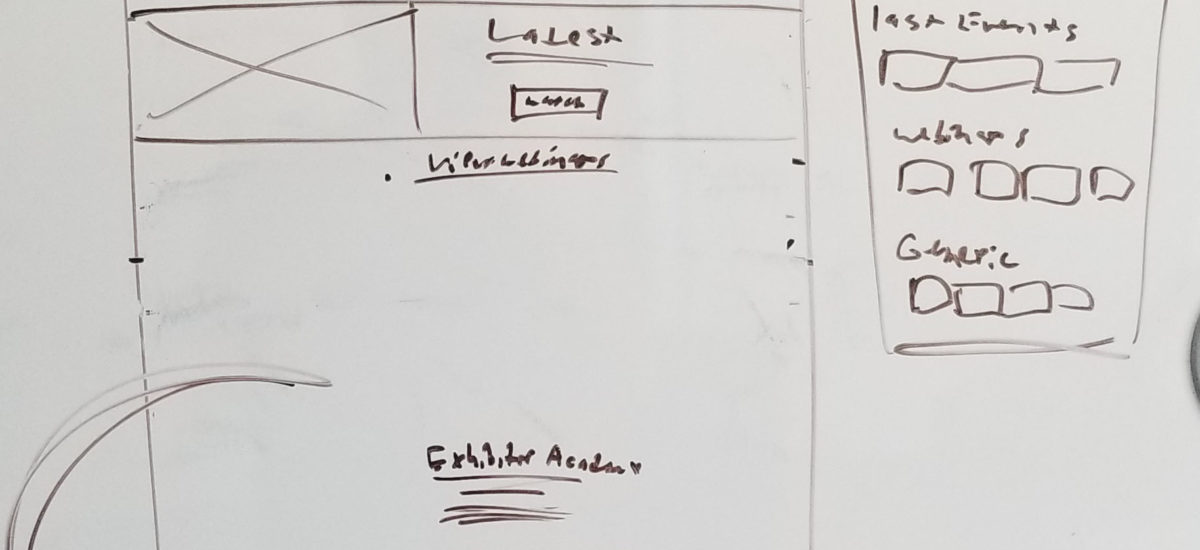 Latest
watch
View webinars
Exhibitor Academy
last Events
webinars
Generic